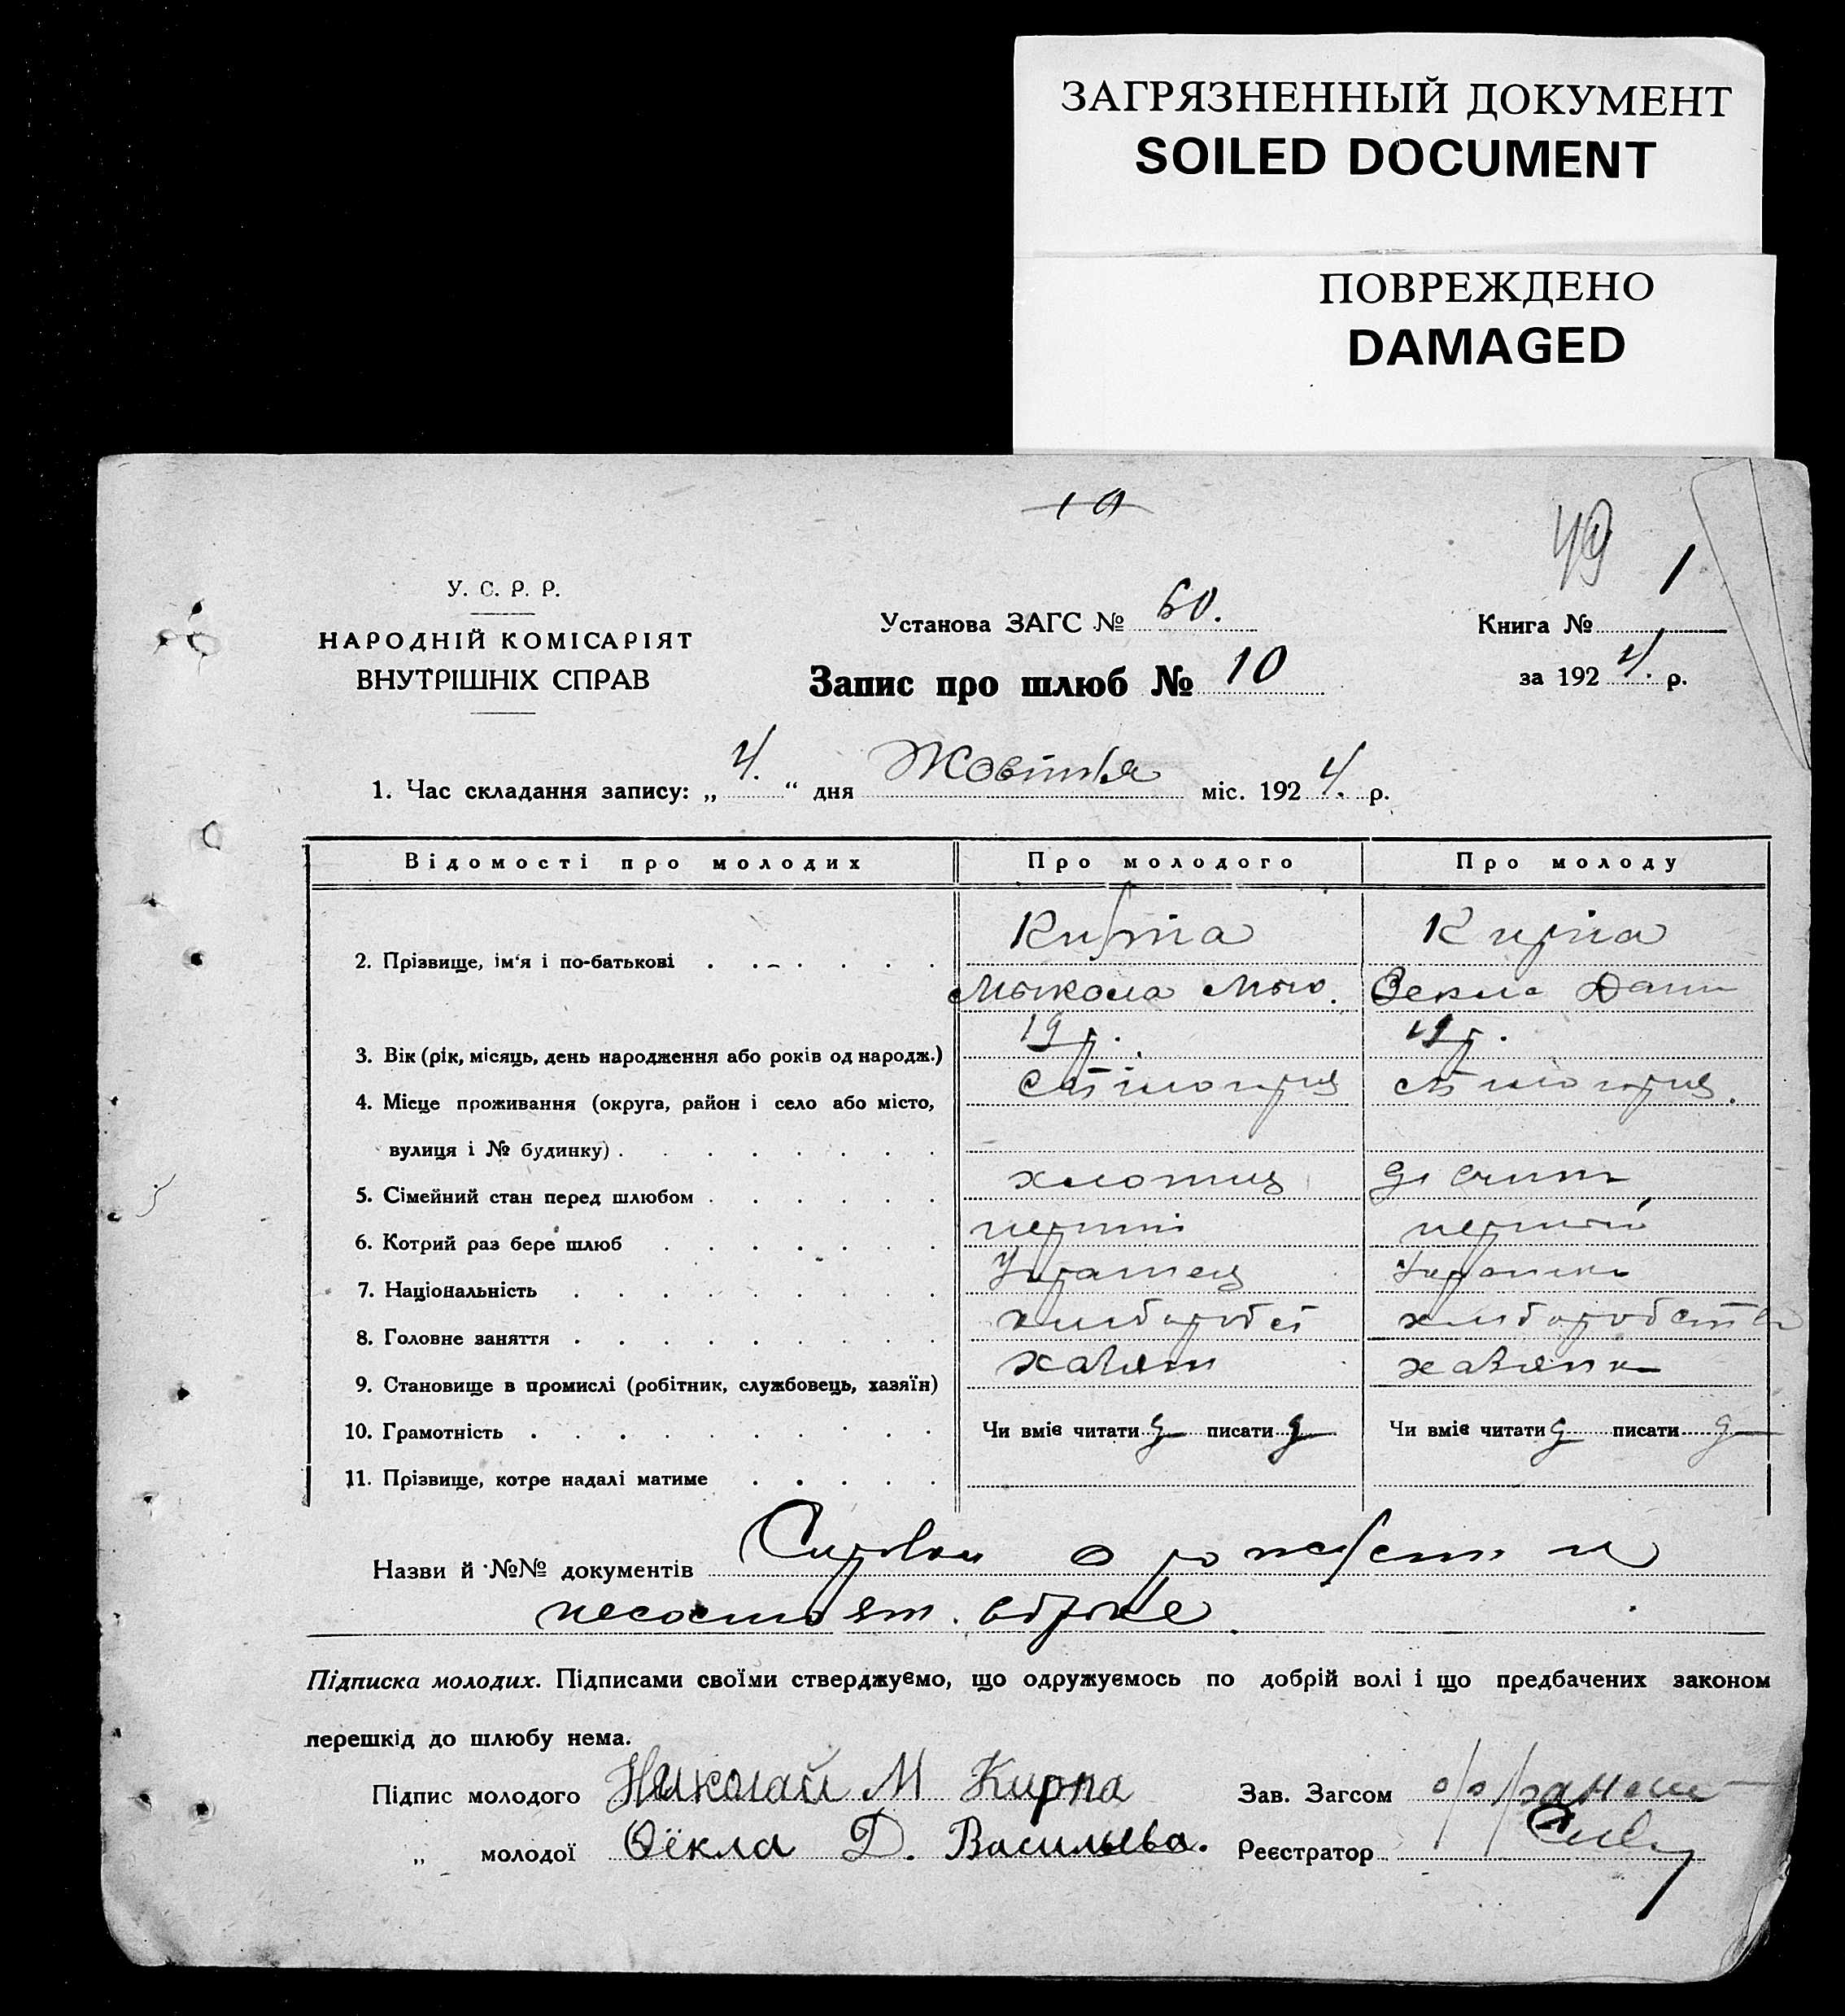 ЗАГРЯЗНЕННЫЙ ДОКУМЕНТ
SOILED DOCUMENT
ПОВРЕЖДЕНО
DAMAGED
10
49
У. С. Р. Р.
НАРОДНІЙ КОМІСАРІЯТ
ВНУТРІШНІХ СПРАВ
Установа ЗАГС № 60.
Запис про шлюб № 10
Книга № 1
за 1924. р.
1. Час складання запису: „4.“ дня Жовтня міс. 1924. р.
Відомості про молодих Про молодого Про молоду
2. Прізвище, ім'я і по-батькові Кирпа Кирпа
Мыкола Мык. Векла Дани
3. Вік (рік, місяць, день народження або років од народж.) 19 р. 19 р.
4. Місце проживання (округа, район і село або місто,
вулиця і № будинку)
5. Сімейний стан перед шлюбом хлопець
6. Котрий раз бере шлюб перший
7. Національність Украинец
8. Головне заняття хлиборобст хлиборобство
9. Становище в промислі (робітник, службовець, хазяїн) хазяин хазяика
10. Грамотність Чи вміє читати д писати д Чи вміє читати д писати д
11. Прізвище, котре надалі матиме
Назви й №№ документів Справки о рождении и
несостоят. в браке.
Підписка молодих. Підписами своїми стверджуємо, що одружуємось по добрій волі і що предбачених законом
перешкід до шлюбу нема.
Підпис молодого Николай М Кирпа Зав. Загсом
„ молодої Ѳёкла Д. Васильева. Реєстратор